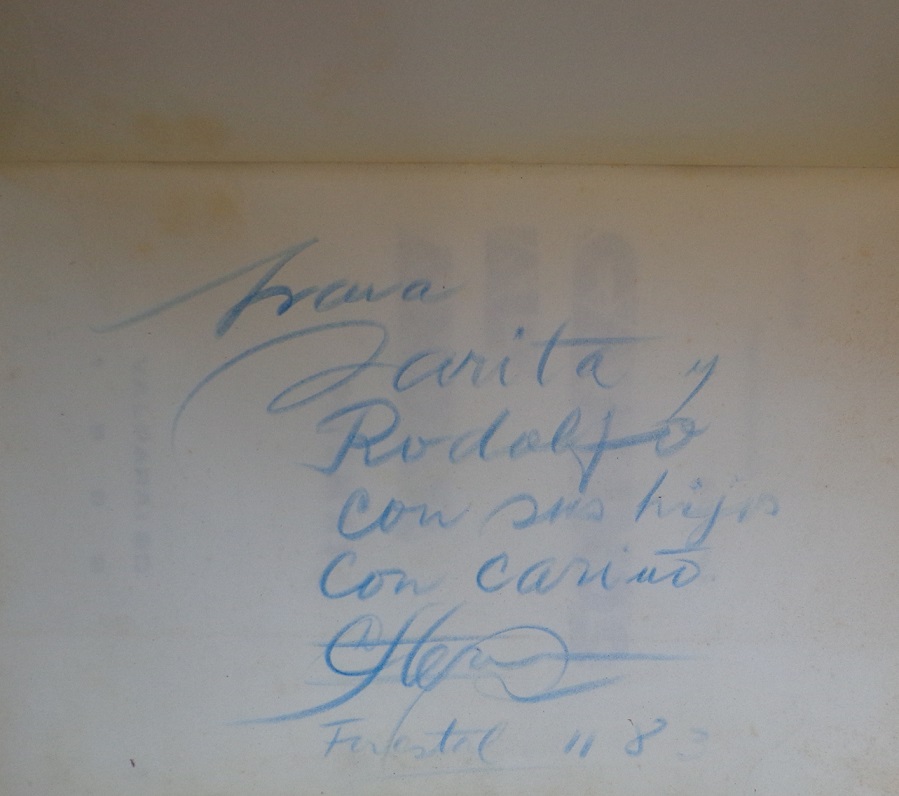 para
Zarita y
Rodolfo
con sus hijos
con cariño
11 83